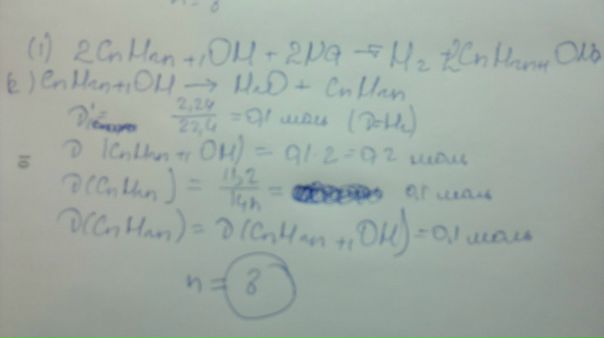 (1) 2CnH2n+1OH + 2Na = H2 + 2CnH2n+1ONa
2) CnH2n+1OH → H2O + CnH2n
2,24/22,4 = 0,1 моль (D=H2)
D (CnH2n+1OH) = 0,1·2 = 0,2 моль
D(CnH2n) = 11,2/14n = 0,1 моль
D(CnH2n) = D(CnH2n+1OH) = 0,1 моль
n = 8